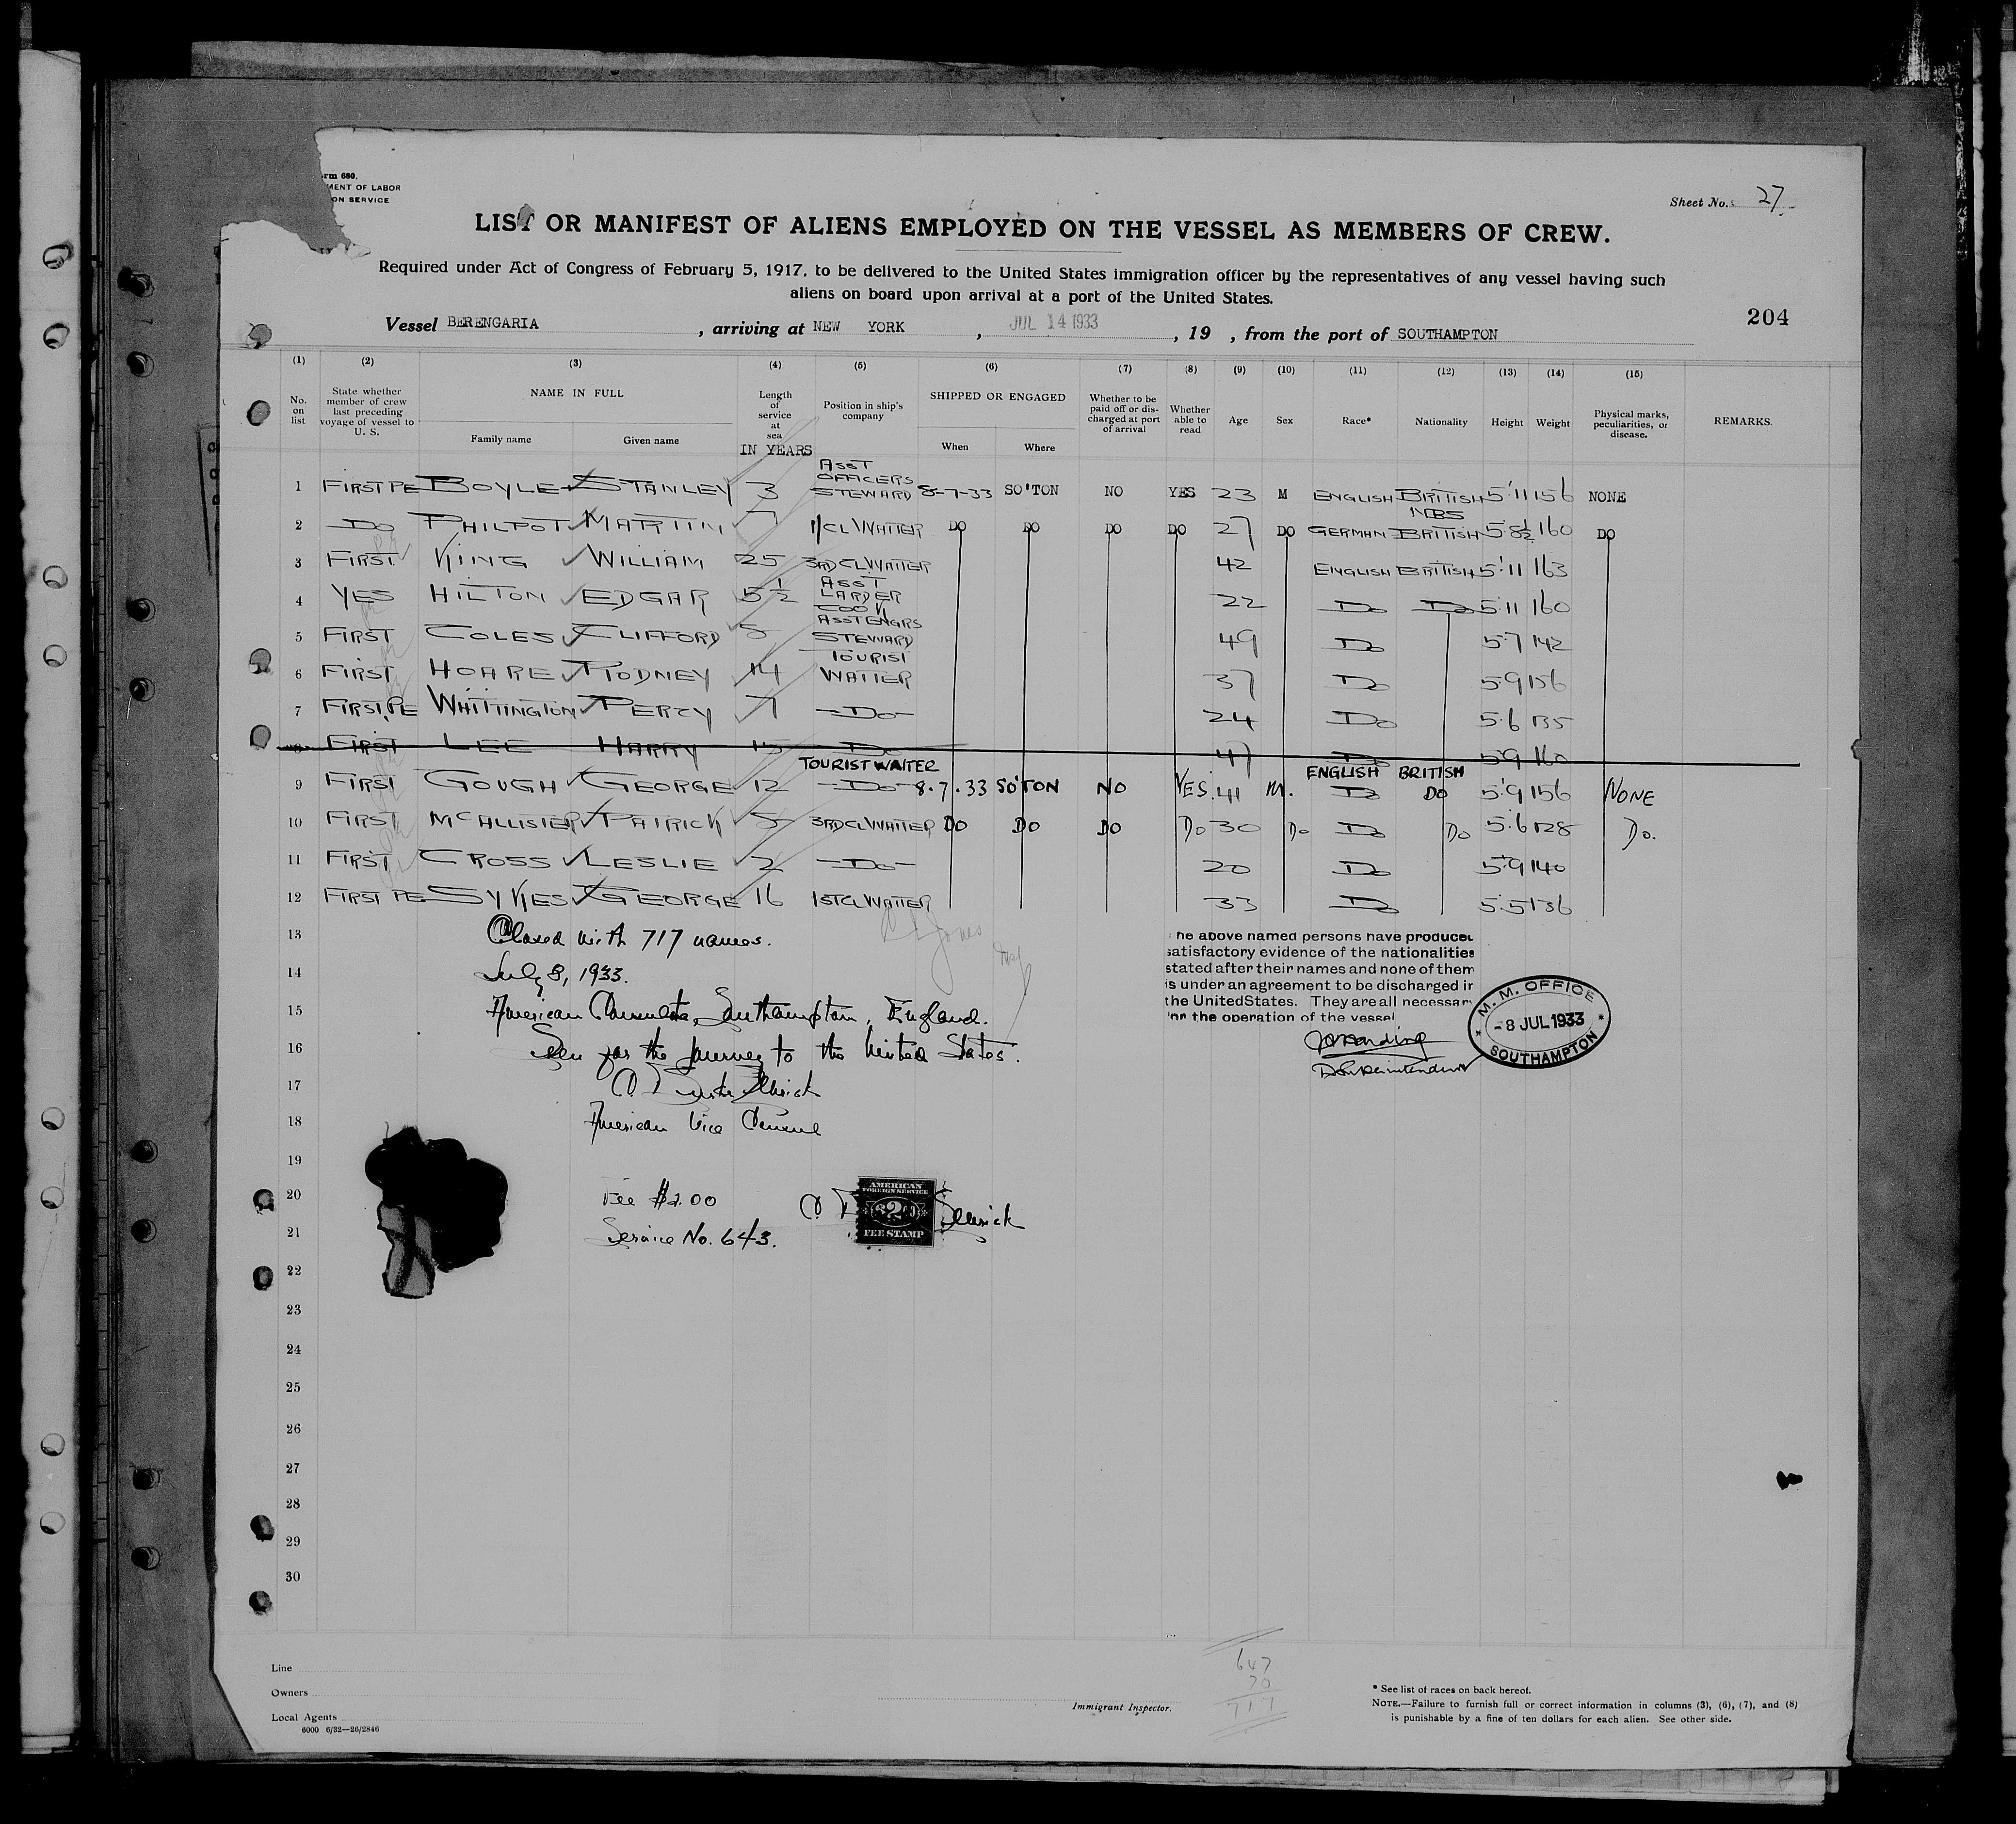 rm 680.
MENT OF LABOR
ON SERVICE
Sheet No. 27
LIST OR MANIFEST OF ALIENS EMPLOYED ON THE VESSEL AS MEMBERS OF CREW.
Required under Act of Congress of February 5, 1917, to be delivered to the United States immigration officer by the representatives of any vessel having such
aliens on board upon arrival at a port of the United States.
204
Vessel BERENGARIA , arriving at NEW YORK , JUL 14 1933 , 19 , from the port of SOUTHAMPTON
(1) (2) (3) (4) (5) (6) (7) (8) (9) (10) (11) (12) (13) (14) (15)
No. on list
State whether member of crew last preceding voyage of vessel to U. S.
NAME IN FULL
Family name
Given name
Length of service at sea
IN YEARS
Position in ship's company
SHIPPED OR ENGAGED
When
Where
Whether to be paid off or discharged at port of arrival
Whether able to read
Age
Sex
Race*
Nationality
Height
Weight
Physical marks, peculiarities, or disease.
REMARKS.
1 FIRST PE BOYLE STANLEY 3 ASST OFFICERS STEWARD 8-7-33 SO'TON NO YES 23 M ENGLISH BRITISH 5'11 156 NONE
2 DO PHILPOT MARTIN 7 1/CL WAITER DO DO DO DO 27 DO GERMAN BRITISH 5.8½ 160 DO
3 FIRST KING WILLIAM 25 3RD CL WAITER 42 ENGLISH BRITISH 5'11 163
4 YES HILTON EDGAR 5½ ASST LARDER COOK 22 DO DO 5'11 160
5 FIRST COLES CLIFFORD 5 ASST ENGRS STEWARD 49 DO 5.7 142
6 FIRST HOARE RODNEY 14 TOURIST WAITER 37 DO 5.9 156
7 FIRST PE WHITTINGTON PERCY 7 DO 24 DO 5.6 135
8 FIRST LEE HARRY 15 DO 47 DO 5.9 160
TOURIST WAITER ENGLISH BRITISH
9 FIRST GOUGH GEORGE 12 DO 8.7.33 SO'TON NO YES. 41 M. DO DO 5'9 156 NONE
10 FIRST McALLISTER PATRICK 5 3RD CL WAITER DO DO DO DO 30 DO DO DO 5.6 128 DO.
11 FIRST CROSS LESLIE 2 DO 20 DO 5'9 140
12 FIRST PE SYKES GEORGE 16 1ST CL WAITER 33 DO 5.5 136
13 Closed with 717 names.
14 July 8, 1933.
15 American Consulate, Southampton, England.
16 Seen for the journey to the United States.
17
18 American Vice Consul
19
20 Fee $2.00
21 Service No. 643.
AMERICAN
FOREIGN SERVICE
FEE STAMP
he above named persons have produced
satisfactory evidence of the nationalities
stated after their names and none of them
is under an agreement to be discharged in
the United States. They are all necessary
for the operation of the vessel
D/Superintendent
M. M. OFFICE
-8 JUL 1933
SOUTHAMPTON
22
23
24
25
26
27
28
29
30
647
70
717
Line
Owners
Local Agents
6000 6/32—26/2846
Immigrant Inspector.
* See list of races on back hereof.
NOTE.—Failure to furnish full or correct information in columns (3), (6), (7), and (8)
is punishable by a fine of ten dollars for each alien. See other side.